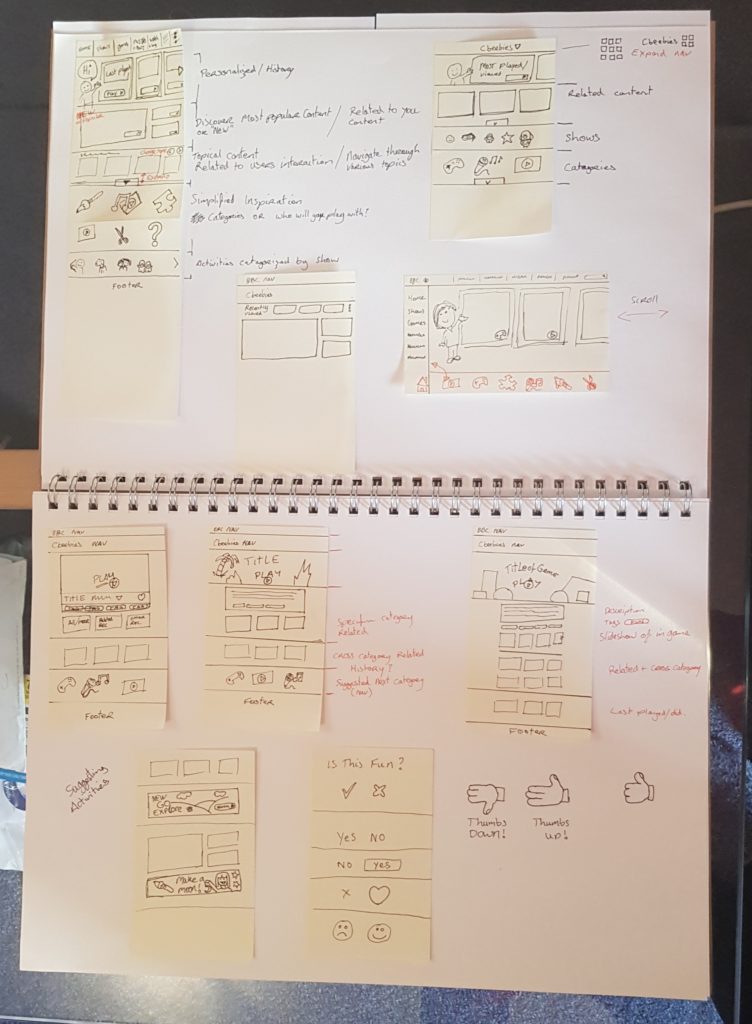 Home Shows games
Hi
Last played
PLAY
NEW
Personalised / History
Discover Most popular Content / Related to you
or "New" content
Topical Content
Related to users interaction / Navigate through
various topics
Simplified Inspiration
Categories OR who will you play with?
Activities categorized by show
FOOTER
Cbeebies
MOST Played/
viewed
Cbeebies
Expand nav
Related content
Shows
Categories
BBC NAV
Cbeebies
Recently
viewed
BBC
Home
Shows
Games
Scroll
BBC NAV
Cbeebies NAV
PLAY
TITLE
FOOTER
BBC NAV
Cbeebies NAV
TITLE
PLAY
FOOTER
Specific category
Related
CROSS category Related
History?
Suggested Next Category
(nav)
BBC NAV
Cbeebies NAV
Title of Game
PLAY
FOOTER
Description
Tags
Slideshow of in game
Related + Cross category
Last played/did.
Suggesting
Activities
NEW
GO
EXPLORE
Make a
Is This Fun?
Yes NO
NO Yes
Thumbs
Down!
Thumbs
up!